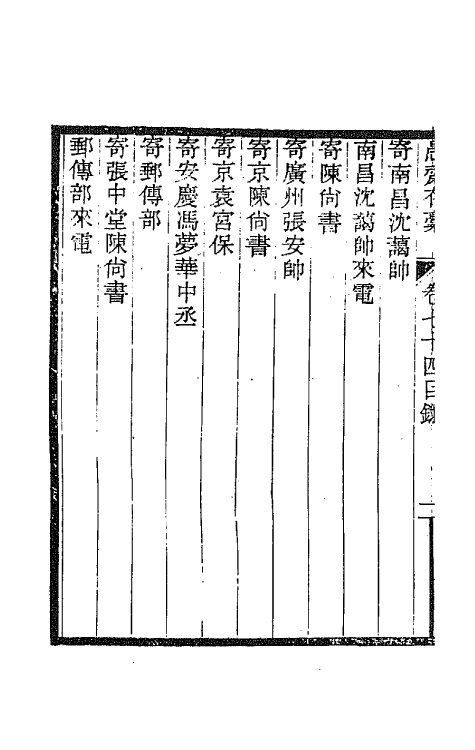 愚齋存稾 卷七十四目錄 二
寄南昌沈藹帥
南昌沈藹帥來電
寄陳尙書
寄廣州張安帥
寄京陳尙書
寄京袁宮保
寄安慶馮夢華中丞
寄郵傳部
寄張中堂陳尙書
郵傳部來電